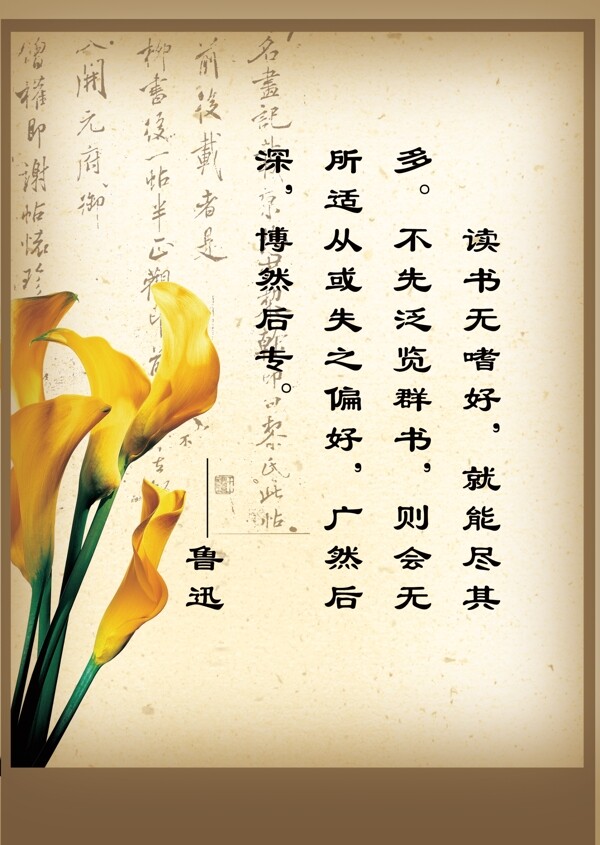 读书无嗜好，就能尽其
多。不先泛览群书，则会无
所适从或失之偏好，广然后
深，博然后专。
——鲁迅
名畫記
黎氏此帖
前後載者是
柳書後一帖半
開元府御
僧權即謝帖懷珍